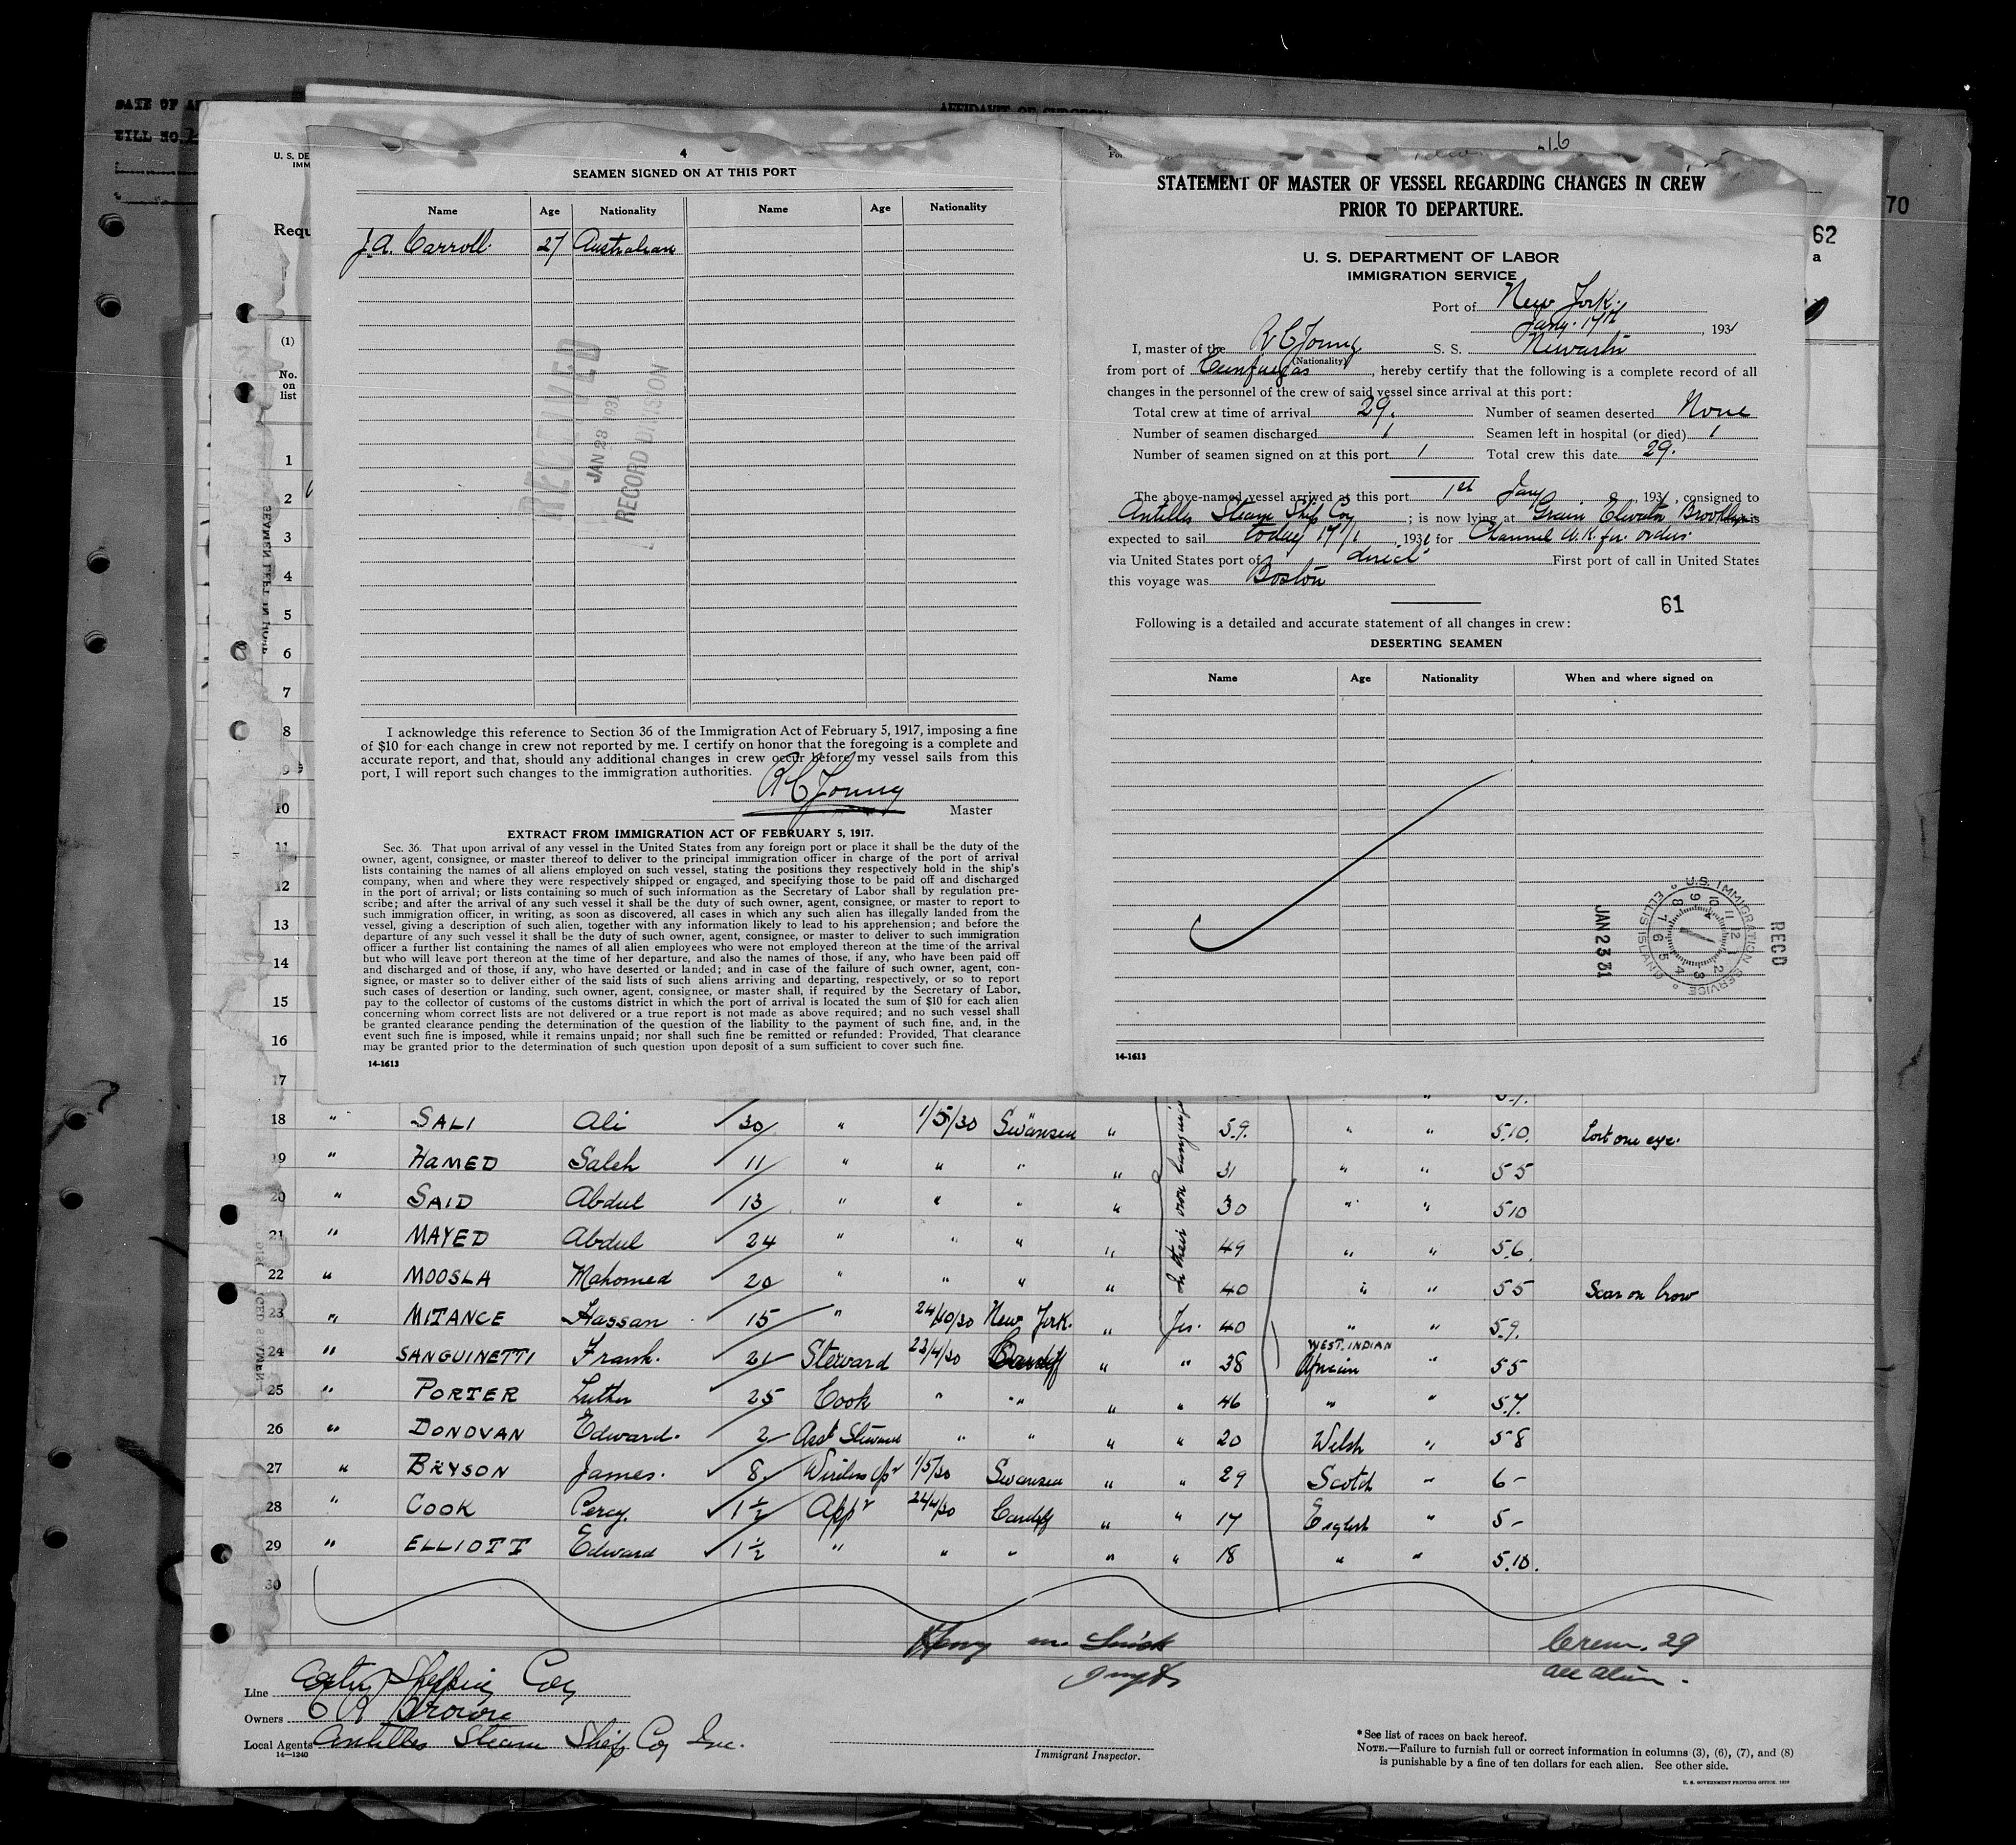 DATE OF
BILL NO.
AFFIDAVIT OF SURGEON
70
62
a
U. S. DE
IMM
Requ
(1)
No.
on
list
1
2
3
4
5
6
7
8
9
10
11
12
13
14
15
16
17
4
SEAMEN SIGNED ON AT THIS PORT
Name Age Nationality Name Age Nationality
J. A. Carroll. 27 Australian
RECEIVED
JAN 28 1931
RECORD DIVISION
I acknowledge this reference to Section 36 of the Immigration Act of February 5, 1917, imposing a fine
of $10 for each change in crew not reported by me. I certify on honor that the foregoing is a complete and
accurate report, and that, should any additional changes in crew occur before my vessel sails from this
port, I will report such changes to the immigration authorities.
R C Young
Master
EXTRACT FROM IMMIGRATION ACT OF FEBRUARY 5, 1917.
Sec. 36. That upon arrival of any vessel in the United States from any foreign port or place it shall be the duty of the
owner, agent, consignee, or master thereof to deliver to the principal immigration officer in charge of the port of arrival
lists containing the names of all aliens employed on such vessel, stating the positions they respectively hold in the ship's
company, when and where they were respectively shipped or engaged, and specifying those to be paid off and discharged
in the port of arrival; or lists containing so much of such information as the Secretary of Labor shall by regulation pre-
scribe; and after the arrival of any such vessel it shall be the duty of such owner, agent, consignee, or master to report to
such immigration officer, in writing, as soon as discovered, all cases in which any such alien has illegally landed from the
vessel, giving a description of such alien, together with any information likely to lead to his apprehension; and before the
departure of any such vessel it shall be the duty of such owner, agent, consignee, or master to deliver to such immigration
officer a further list containing the names of all alien employees who were not employed thereon at the time of the arrival
but who will leave port thereon at the time of her departure, and also the names of those, if any, who have been paid off
and discharged and of those, if any, who have deserted or landed; and in case of the failure of such owner, agent, con-
signee, or master so to deliver either of the said lists of such aliens arriving and departing, respectively, or so to report
such cases of desertion or landing, such owner, agent, consignee, or master shall, if required by the Secretary of Labor,
pay to the collector of customs of the customs district in which the port of arrival is located the sum of $10 for each alien
concerning whom correct lists are not delivered or a true report is not made as above required; and no such vessel shall
be granted clearance pending the determination of the question of the liability to the payment of such fine, and, in the
event such fine is imposed, while it remains unpaid; nor shall such fine be remitted or refunded: Provided, That clearance
may be granted prior to the determination of such question upon deposit of a sum sufficient to cover such fine.
14-1613
STATEMENT OF MASTER OF VESSEL REGARDING CHANGES IN CREW
PRIOR TO DEPARTURE.
U. S. DEPARTMENT OF LABOR
IMMIGRATION SERVICE
Port of New York.
Jany. 17th, 1931
I, master of the R C Young (Nationality) S. S.
from port of Cienfuegos, hereby certify that the following is a complete record of all
changes in the personnel of the crew of said vessel since arrival at this port:
Total crew at time of arrival 29. Number of seamen deserted None
Number of seamen discharged 1 Seamen left in hospital (or died) 1
Number of seamen signed on at this port 1 Total crew this date 29.
The above-named vessel arrived at this port 1st Jany, 1931, consigned to
Antilles Steam Ship Coy; is now lying at Grain Elevator Brooklyn is
expected to sail today 17/1, 1931 for Channel U.K. for orders.
via United States port of direct First port of call in United States
this voyage was Boston
61
Following is a detailed and accurate statement of all changes in crew:
DESERTING SEAMEN
Name Age Nationality When and where signed on
U.S. IMMIGRATION SERVICE ELLIS ISLAND
JAN 23 31
RECD
14-1613
18 " SALI Ali 30 " 1/5/30 Swansea " 59. " " 5.10. Lost one eye.
19 " HAMED Saleh 11 " " " " 31 " " 55
20 " SAID Abdul 13 " " " " 30 " " 510
21 " MAYED Abdul 24 " " " " 49 " " 5.6.
22 " MOOSLA Mahomed 20 " " " " 40 " " 55 Scar on brow
23 " MITANCE Hassan 15 " 24/10/30 New York. " Yes. 40 " " 5.9.
24 " SANGUINETTI Frank. 21 Steward 23/4/30 Cardiff " " 38 WEST INDIAN African " 55
25 " PORTER Luther 25 Cook " " " " 46 " " 5.7.
26 " DONOVAN Edward. 2 Asst Steward " " " " 20 Welsh " 58
27 " BRYSON James. 8 Wireless Opr 1/5/30 Swansea " " 29 Scotch " 6-
28 " COOK Percy. 1½ Appr 24/4/30 Cardiff " " 17 English " 5-
29 " ELLIOTT Edward 1½ " " " " " 18 " " 5.10.
30
Crew. 29
all alien.
Line Shipping Coy
Owners Brown
Local Agents Antilles Steam Ship Coy Inc.
14—1240
Immigrant Inspector.
*See list of races on back hereof.
NOTE.—Failure to furnish full or correct information in columns (3), (6), (7), and (8)
is punishable by a fine of ten dollars for each alien. See other side.
U. S. GOVERNMENT PRINTING OFFICE. 1930